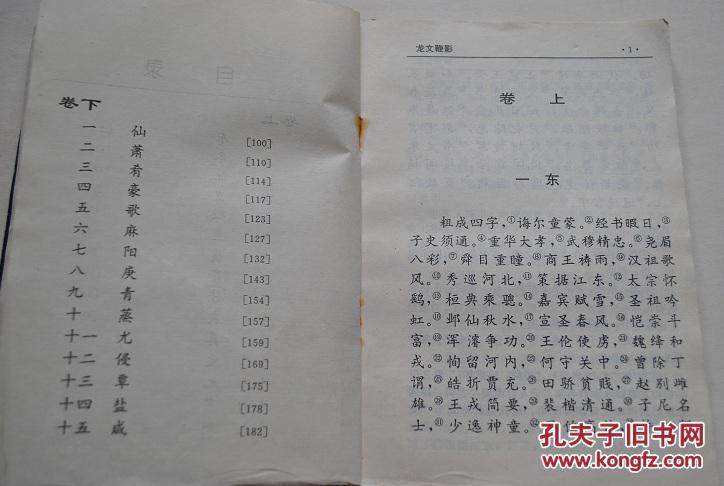 卷下
一 仙 [100]
二 萧 [110]
三 肴 [114]
四 豪 [117]
五 歌 [123]
六 麻 [127]
七 阳 [132]
八 庚 [143]
九 青 [154]
十 蒸 [157]
十一 尤 [159]
十二 侵 [169]
十三 覃 [175]
十四 盐 [178]
十五 咸 [182]
龙文鞭影 ·1·
卷 上
一 东
粗成四字,①诲尔童蒙。②经书暇日,③
子史须通。④重华大孝,⑤武穆精忠。⑥尧眉
八彩,⑦舜目重瞳。⑧商王祷雨,⑨汉祖歌
风。⑩秀巡河北,⑪策据江东。⑫太宗怀
鹞,⑬桓典乘骢。⑭嘉宾赋雪,⑮圣祖吟
虹。⑯邺仙秋水,⑰宣圣春风。⑱恺崇斗
富,⑲浑濬争功。⑳王伦使虏,㉑魏绛和
戎。㉒恂留河内,㉓何守关中。㉔曾除丁
谓,㉕皓折贾充。㉖田骄贫贱,㉗赵别雌
雄。㉘王戎简要,㉙裴楷清通。㉚子尼名
士,㉛少逸神童。㉜
孔夫子旧书网
www.kongfz.com